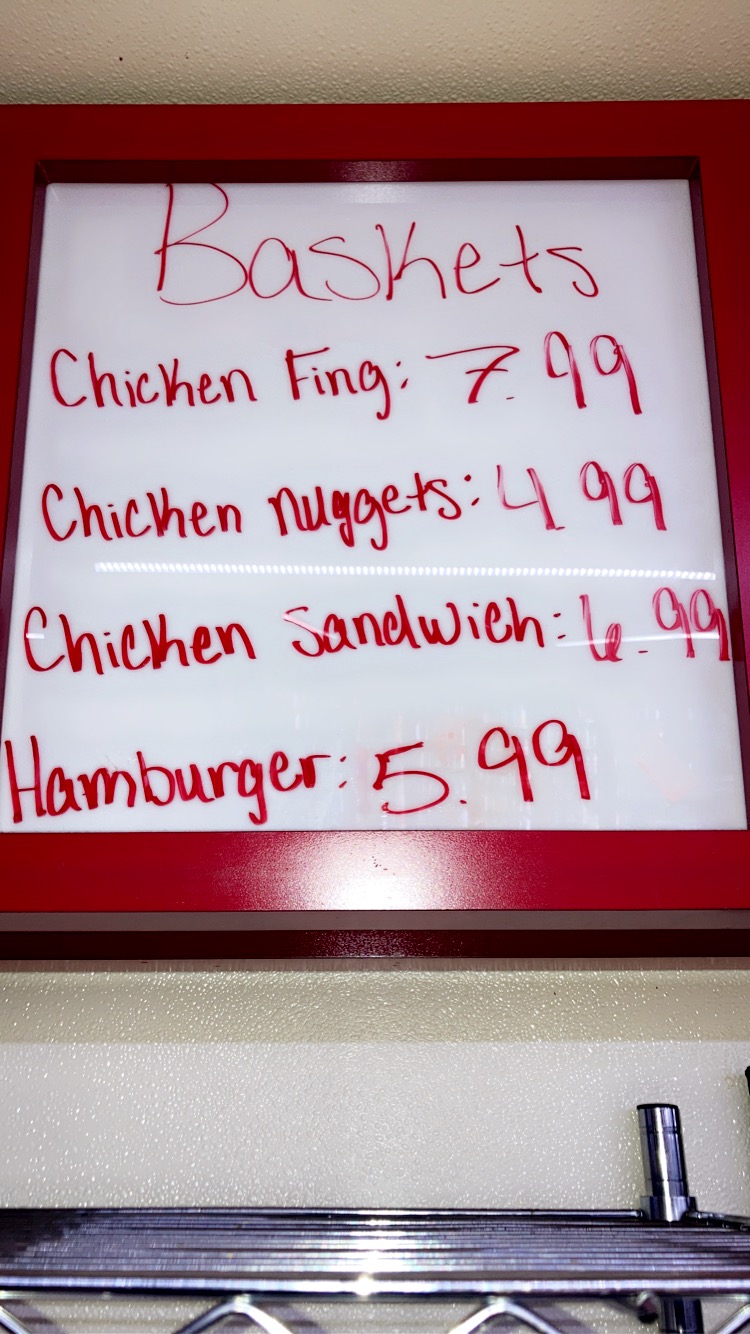 Baskets
Chicken Fing: 7.99
Chicken nuggets: 4.99
Chicken Sandwich: 6.99
Hamburger: 5.99